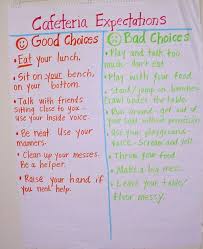 Cafeteria Expectations
Good Choices
• Eat your lunch.
• Sit on your bench,
on your bottom.
• Talk with friends
sitting close to you -
use your inside voice.
• Be neat Use your
manners.
• Clean up your messes.
Be a helper.
• Raise your hand if
you need help.
Bad Choices
• Play and talk too
much - don't eat
• Play with your food.
• Stand/jump on benches
Crawl under the table.
• Run around - get out of
your seat without permission
• Use your playground
voice - Scream and yell
• Throw your food
• Make a big mess.
• Leave your table/
floor messy.